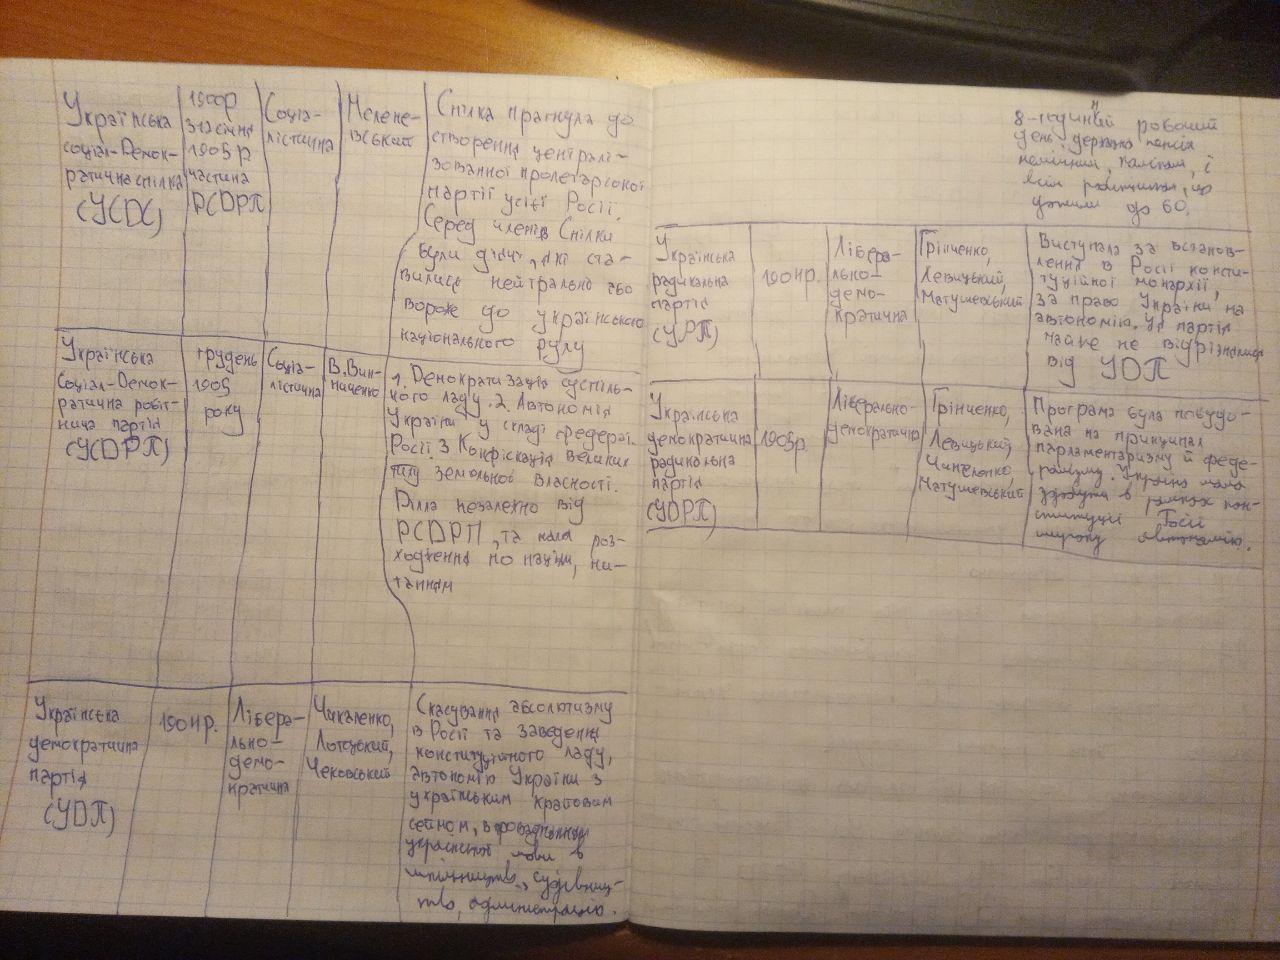 Українська
соціал-Демок-
ратична спілка
(УСДС)
з 12 січня
1905 р
частина
РСДРП
Соціа-
лістична
Мелене-
вський
Спілка прагнула до
створення централі-
зованної пролетарської
партії усієї Росії.
Серед членів Спілки
були діячі, які ста-
вились нейтрально або
вороже до українського
національного руху
Українська
Соціал-Демок-
ратична робіт-
нича партія
(УСДРП)
грудень
1905
року
Соціа-
лістична
В.Вин-
ниченко
1. Демократизація суспіль-
ного ладу. 2. Автономія
України у складі федерат.
Росії 3. Конфіскація великих
типу земольної власності.
Діяла незалежно від
РСДРП, та мала роз-
ходження по націон, пи-
танням
Українська
демократична
партія
(УДП)
1904р.
Лібера-
льно-
демо-
кратична
Чикаленко,
Лотоцький,
Чеховський
Скасування абсолютизму
в Росії та заведення
конституційного ладу,
автономію України з
українським крайовим
сеймом, впровадження
української мови в
судівниц-
тво, адміністрацію.
8-годиний робочий
н
день, державна пенсія
калікам, і
всім робітникам, що
дожили до 60.
Українська
радикальна
партія
(УРП)
1904р.
Лібера-
льно-
демо-
кратична
Грінченко,
Левицький,
Матушевський
Виступала за встанов-
лення в Росії консти-
туційної монархії,
за право України на
автономію. Ця партія
майже не відрізнялась
від УДП
Українська
демократична
радикальна
партія
(УДРП)
1905р.
Ліберально-
демократична
Грінченко,
Левицький,
Чикаленко,
Матушевський
Програма була побудо-
вана на принципах
парламентаризму й феде-
ралізму. Україна мала
здобути в рамках кон-
ституції Росії
широку автономію.